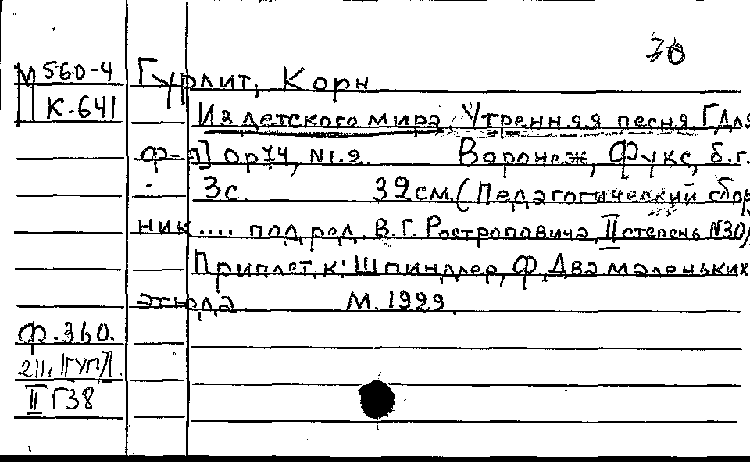 30
М 560-4
К-641
Гурлит, Корн
Из детского мира. Утренняя песня [Для
ф-п] ор 74, N1.2. Воронеж, Фукс, б.г.
3с. 32см. (Педагогический сбор
ник.... под ред. В.Г. Ростроповича, II степень N30)
Приплет. к: Шпиндлер, Ф. Два маленьких
этюда М. 1929.
Ф. 360.
II Г38